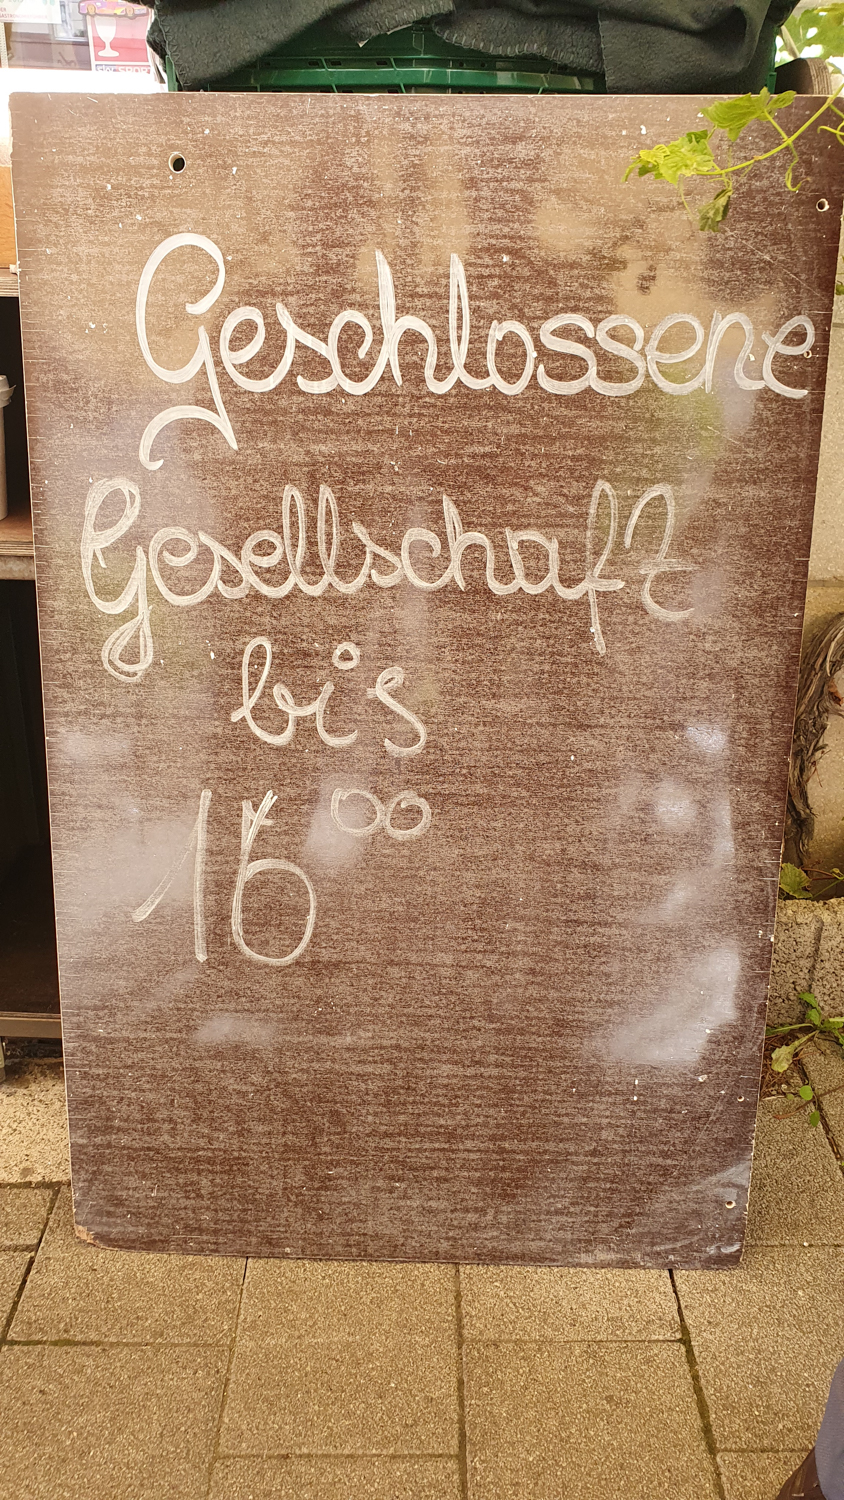 Geschlossene
Gesellschaft
bis
16⁰⁰